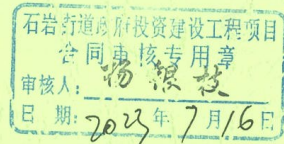 石岩街道政府投资建设工程项目
合同审核专用章
审核人：杨银枝
日期：2023年7月16日